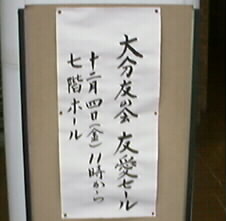 大分友の会 友愛セール
十二月四日(金)11時から
七階ホール